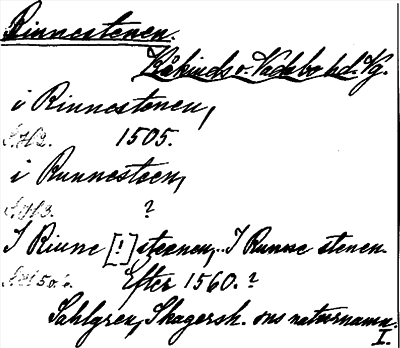 Rinnestenen.
Kåkinds o. Vadsbo hd. Vg.
i Rinnestenen,
1505.
i Runnesteen,
?
I Rinne [!] steenen,.. I Runne stenen.
Efter 1560.?
Sahlgren, Skagersh. ons naturnamn.
I.